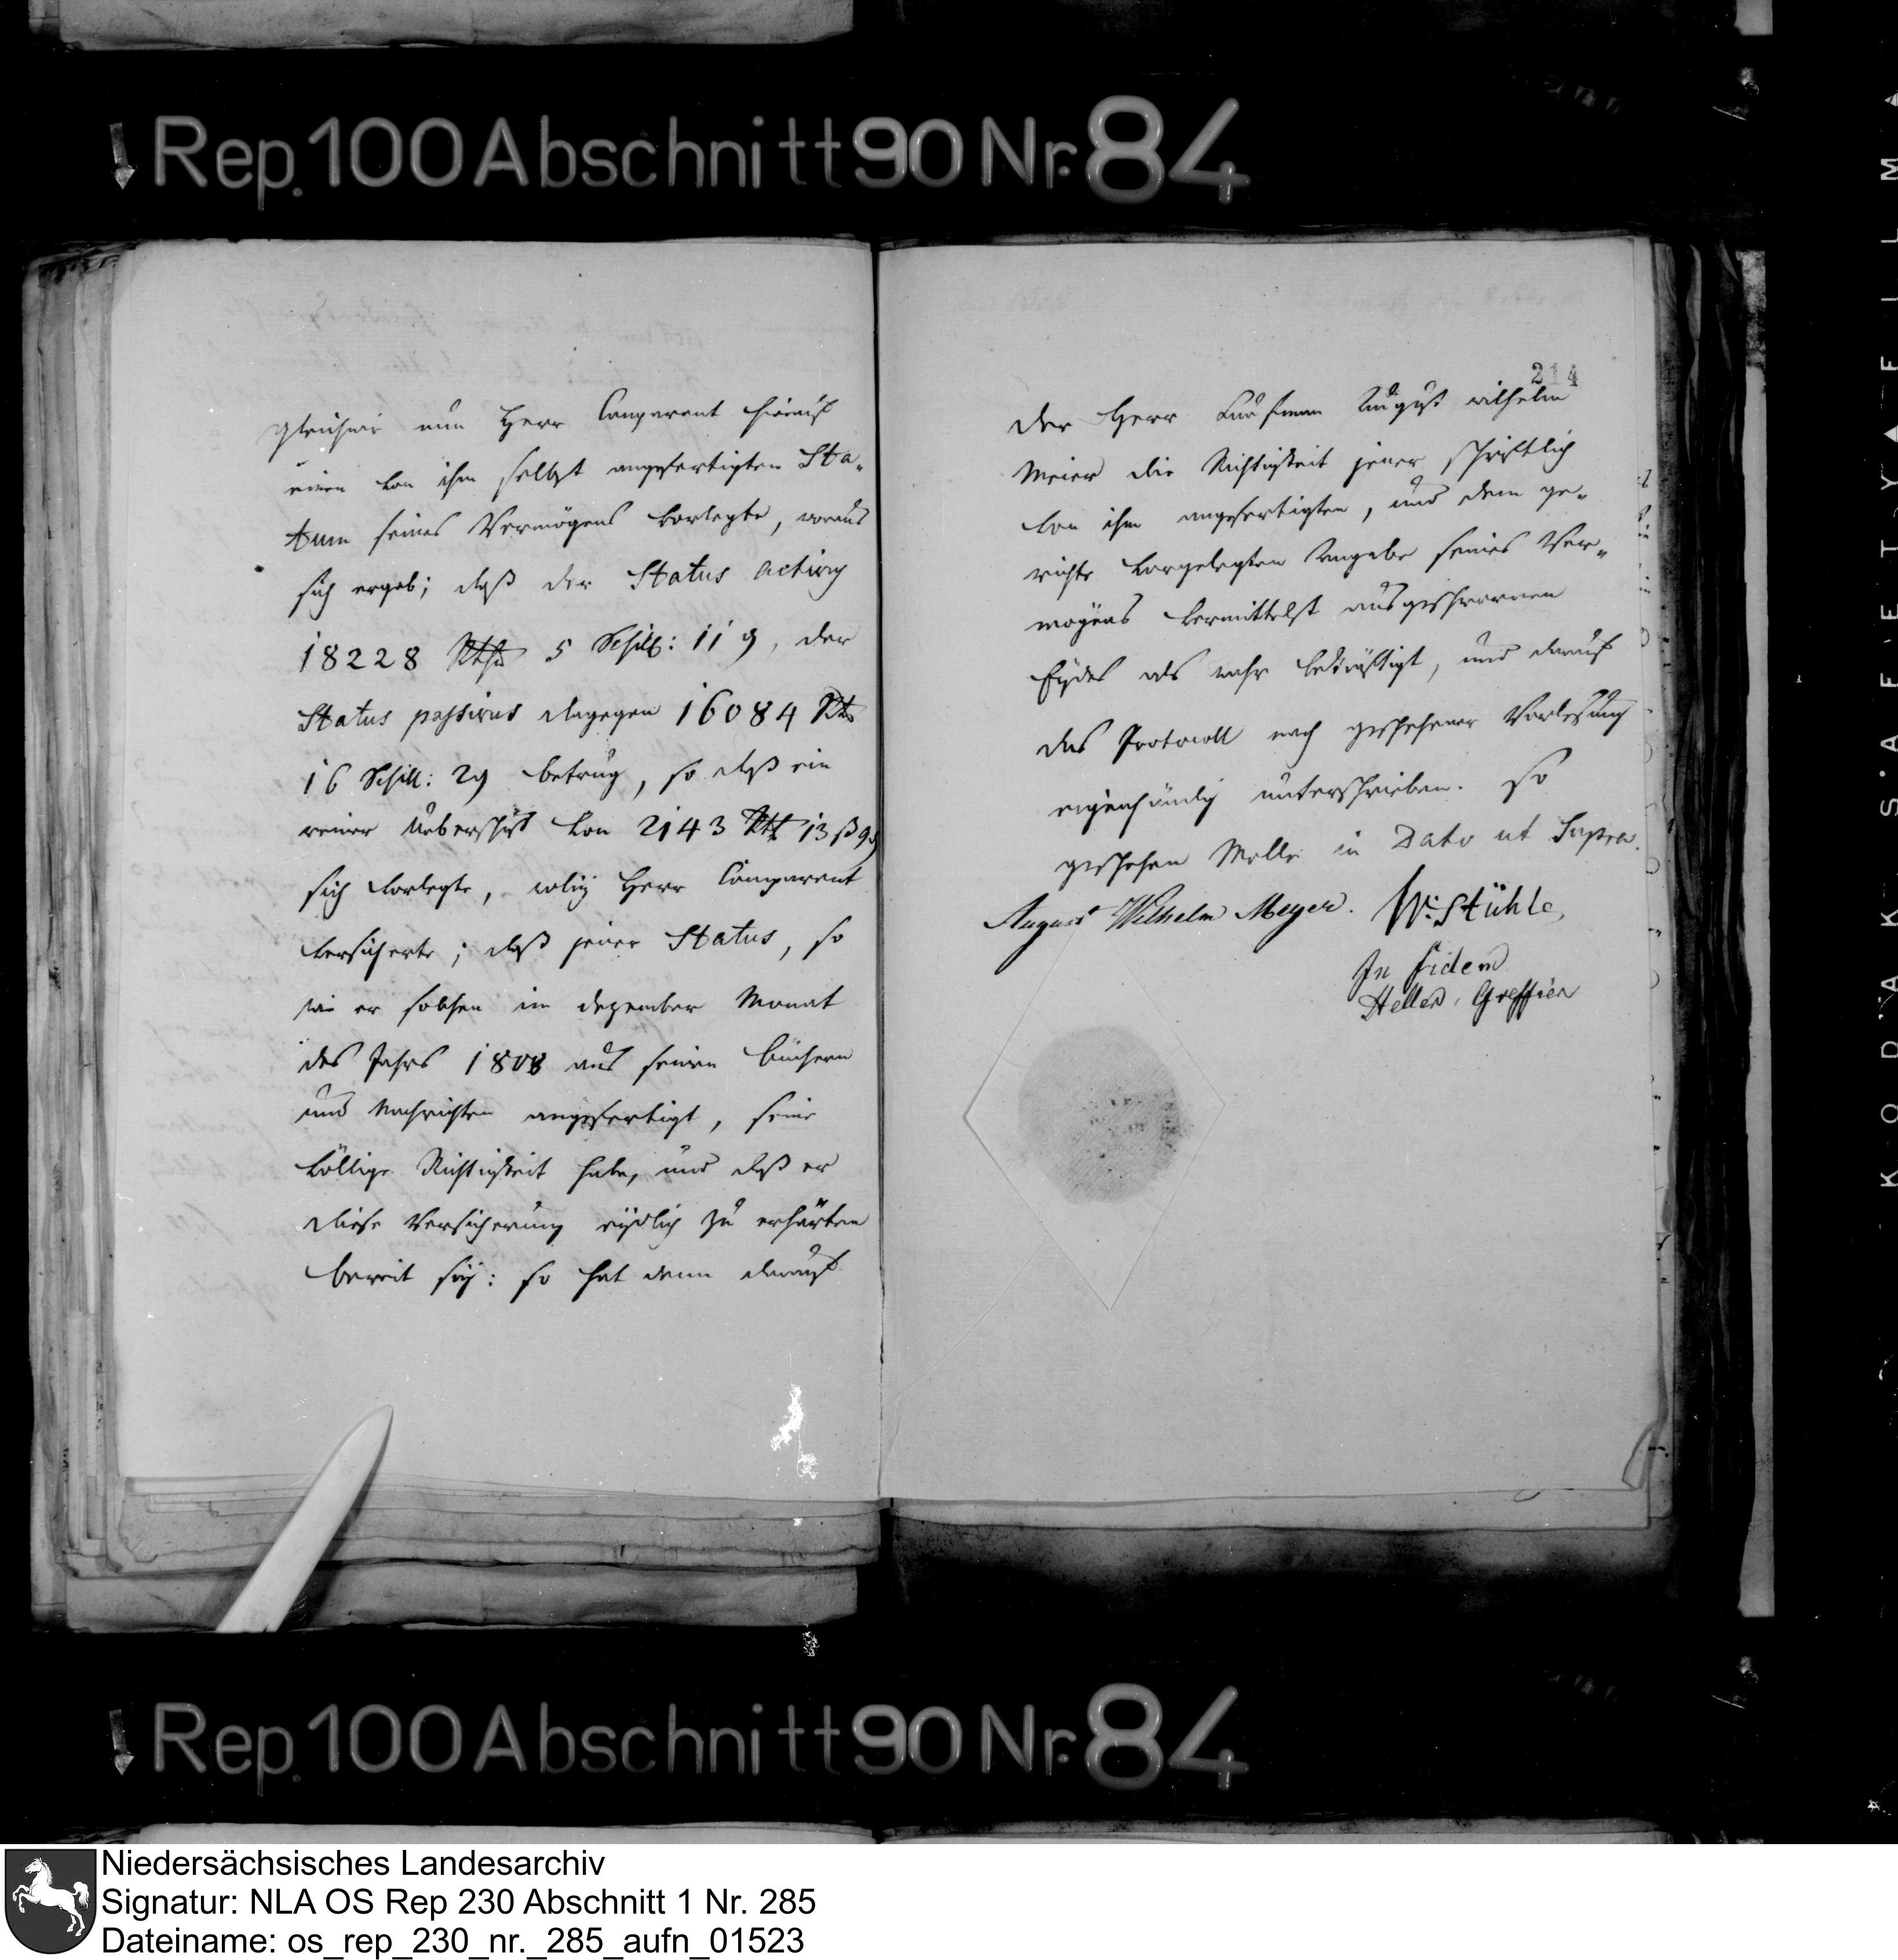 Rep. 100 Abschnitt 90 Nr. 84
gleichwie nun Herr Comparent hierauf
einen von ihm selbst angefertigten Sta-
tum seines Vermögens vorlegte, woraus
sich ergab; daß der Status activus
18228 Rthr 5 Schill: 11 ₰, der
Status passivus dagegen 16084 Rt
16 Schill: 2 ₰ betrug, so daß ein
reiner Ueberschuß von 2143 Rth 13 ß 9 ₰
sich vorlegte, Herr Comparent
versicherte; daß jener Status, so
wie er solchen im dezember Monat
des Jahrs 1808 aus seinen büchern
und Nachrichten angefertigt, seine
völlige Richtigkeit habe, und daß er
diese Versicherung eydlich zu erhärten
bereit sey: so hat denn darauf
214
der Herr Kaufmann August wilhelm
Meier die Richtigkeit jener schriftlich
von ihm angefertigten, und dem ge-
richte vorgelegten Angabe seines Ver-
mögens vermittelst ausgeschwornen
Eydes als wahr bekräftigt, und darauf
das Protocoll nach geschehener Vorlesung
eigenhändig unterschrieben. So
geschehen Melle in Dato ut Supra.
August Wilhelm Meyer. W. Stühle,
In fidem
Heller, Greffier
KODAK SAFETY FILM
Rep. 100 Abschnitt 90 Nr. 84
Niedersächsisches Landesarchiv
Signatur: NLA OS Rep 230 Abschnitt 1 Nr. 285
Dateiname: os_rep_230_nr._285_aufn_01523